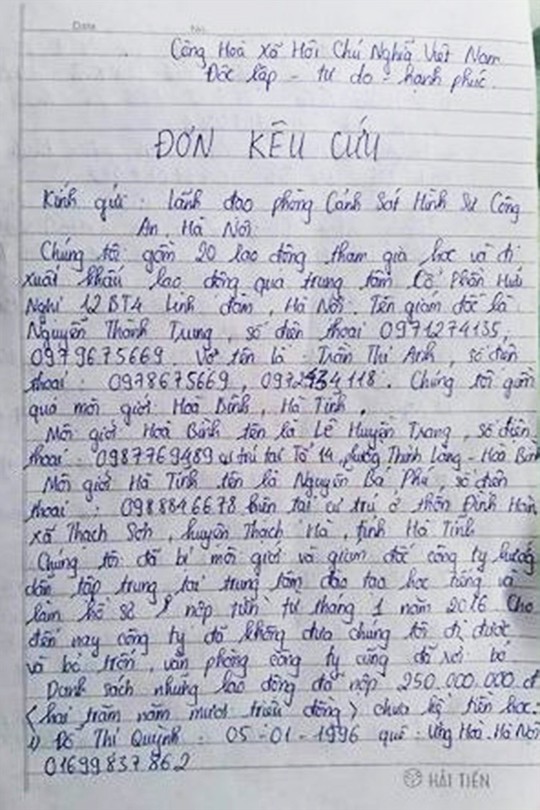 Date No.
Công Hoà Xã Hôi Chủ Nghĩa Việt Nam
Độc lập - tự do - hạnh phúc.
ĐƠN KÊU CỨU
Kính gửi : Lãnh đạo phòng Cảnh Sát Hình Sự Công
An, Hà Nôi
Chúng tôi gồm 20 lao đông tham gia học và đi
xuất khẩu lao động qua trung tâm Cổ Phần Hữu
Nghị 12BT4 Linh đàm, Hà Nôi. Tên giám đốc là
Nguyễn Thành Trung, số điện thoại 0971274135,
0979675669. Vợ tên là : Trần Thị Anh, số điện
thoại : 0978675669, 0972434118. Chúng tôi gồm
qua môi giới Hoà Bình, Hà Tĩnh.
Môi giới Hoà Bình tên là Lê Huyền Trang, số điện
thoại : 0987769489 cư trú tại Tổ 14, phường Thịnh Lang - Hoà Bình
Môi giới Hà Tĩnh tên là Nguyễn Bá Phú, số điện
thoại : 0988846678 hiện tại cư trú ở thôn Đình Hàn,
xã Thạch Sơn, huyện Thạch Hà, tỉnh Hà Tĩnh
Chúng tôi đã bị môi giới và giám đốc công ty hướng
dẫn tập trung tại trung tâm đào tạo học tiếng và
làm hồ sơ nộp tiền từ tháng 1 năm 2016 Cho
đến nay công ty đã không đưa chúng tôi đi được
và bỏ trốn, văn phòng công ty cũng đã rời bỏ
Danh sách những lao động đã nộp 250.000.000 đ
(hai trăm năm mươi triệu đồng) chưa kể tiền học:
1) Đỗ Thị Quỳnh : 05-01-1996 quê : Ứng Hoà. Hà Nội
01699837862
HẢI TIẾN